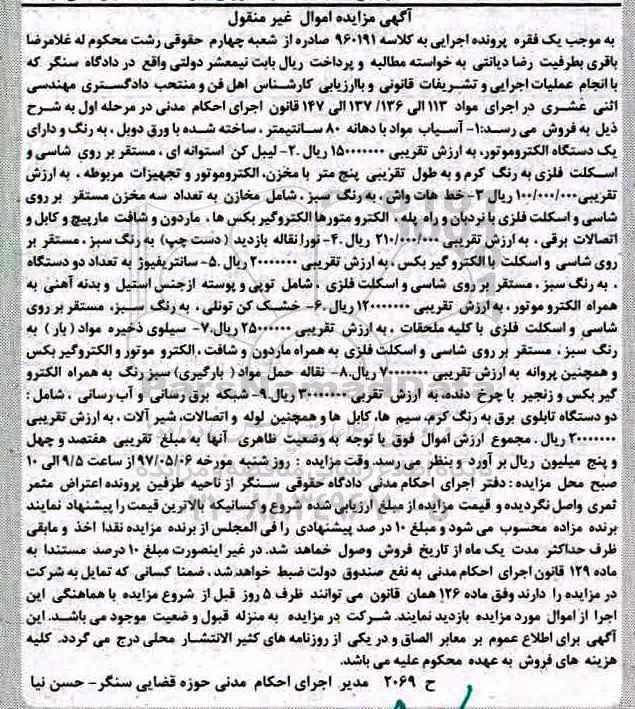 آگهی مزایده اموال غیر منقول
به موجب یک فقره پرونده اجرایی به کلاسه ۹۶۰۱۹۱ صادره از شعبه چهارم حقوقی رشت محکوم له غلامرضا
باقری بطرفیت رضا دیانتی به خواسته مطالبه و پرداخت ریال بابت نیمعشر دولتی واقع در دادگاه سنگر که
با انجام عملیات اجرایی و تشریفات قانونی و باارزیابی کارشناس اهل فن و منتخب دادگستری مهندسی
اثنی عشری در اجرای مواد ۱۱۳ الی ۱۳۶/ ۱۳۷ الی ۱۴۷ قانون اجرای احکام مدنی در مرحله اول به شرح
ذیل به فروش می رسد:۱- آسیاب مواد با دهانه ۸۰ سانتیمتر ، ساخته شده با ورق دوبل ، به رنگ و دارای
یک دستگاه الکتروموتور، به ارزش تقریبی ۱۵۰۰۰۰۰۰۰ ریال .۲- لیبل کن استوانه ای ، مستقر بر روی شاسی و
اسکلت فلزی به رنگ کرم و به طول تقریبی پنج متر با مخزن، الکتروموتور و تجهیزات مربوطه ، به ارزش
تقریبی۱۰۰/۰۰۰/۰۰۰ ریال ۳- خط هات واش ، به رنگ سبز ، شامل مخازن به تعداد سه مخزن مستقر بر روی
شاسی و اسکلت فلزی با نردبان و راه پله ، الکترو متورها الکتروگیر بکس ها ، ماردون و شافت مارپیچ و کابل و
اتصالات برقی ، به ارزش تقریبی ۲۱۰/۰۰۰/۰۰۰ ریال .۴- نورا نقاله بازدید ( دست چپ) به رنگ سبز ، مستقر بر
روی شاسی و اسکلت با الکترو گیر بکس ، به ارزش تقریبی ۲۰۰۰۰۰۰۰ ریال .۵- سانتریفیوژ به تعداد دو دستگاه
، به رنگ سبز ، مستقر بر روی شاسی و اسکلت فلزی ، شامل توپی و پوسته ازجنس استیل و بدنه آهنی به
همراه الکترو موتور ، به ارزش تقریبی ۱۲۰۰۰۰۰۰۰ ریال .۶- خشک کن تونلی ، به رنگ سبز، مستقر بر روی
شاسی و اسکلت فلزی با کلیه ملحقات ، به ارزش تقریبی ۲۵۰۰۰۰۰۰ ریال.۷- سیلوی ذخیره مواد ( بار ) به
رنگ سبز ، مستقر بر روی شاسی و اسکلت فلزی به همراه ماردون و شافت ، الکترو موتور و الکتروگیر بکس
و همچنین پروانه به ارزش تقریبی ۷۰۰۰۰۰۰۰ ریال.۸- نقاله حمل مواد ( بارگیری) سبز رنگ به همراه الکترو
گیر بکس و زنجیر با چرخ دنده، به ارزش تقریبی ۳۰۰۰۰۰۰۰ ریال.۹- شبکه برق رسانی و آب رسانی ، شامل :
دو دستگاه تابلوی برق به رنگ کرم، سیم ها، کابل ها و همچنین لوله و اتصالات، شیر آلات ، به ارزش تقریبی
۲۰۰۰۰۰۰۰ ریال . مجموع ارزش اموال فوق با توجه به وضعیت ظاهری آنها به مبلغ تقریبی هفتصد و چهل
و پنج میلیون ریال بر آورد و بنظر می رسد. وقت مزایده : روز شنبه مورخه ۹۷/۰۵/۰۶ از ساعت ۹/۵ الی ۱۰
صبح محل مزایده : دفتر اجرای احکام مدنی دادگاه حقوقی سنگر از ناحیه طرفین پرونده اعتراض مثمر
ثمری واصل نگردیده و قیمت مزایده از مبلغ ارزیابی شده شروع و کسانیکه بالاترین قیمت را پیشنهاد نمایند
برنده مزاده محسوب می شود و مبلغ ۱۰ در صد پیشنهادی را فی المجلس از برنده مزایده نقدا اخذ و مابقی
ظرف حداکثر مدت یک ماه از تاریخ فروش وصول خماهد شد. در غیر اینصورت مبلغ ۱۰ درصد مستندا به
ماده ۱۲۹ قانون اجرای احکام مدنی به نفع صندوق دولت ضبط خواهد شد ، ضمنا کسانی که تمایل به شرکت
در مزایده را دارند وفق ماده ۱۲۶ همان قانون می توانند ظرف ۵ روز قبل از شروع مزایده با هماهنگی این
اجرا از اموال مورد مزایده بازدید نمایند. شرکت در مزایده به منزله قبول و ضعیت موجود می باشد. این
آگهی برای اطلاع عموم بر معابر الصاق و در یکی از روزنامه های کثیر الانتشار محلی درج می گردد. کلیه
هزینه های فروش به عهده محکوم علیه می باشد.
ح ۲۰۶۹ مدیر اجرای احکام مدنی حوزه قضایی سنگر - حسن نیا